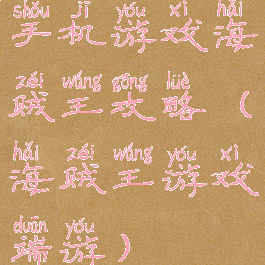 shǒu jī yóu xì hǎi
手机游戏海
zéi wáng gōng lüè
贼王攻略（
hǎi zéi wáng yóu xì
海贼王游戏
duān yóu
端游）